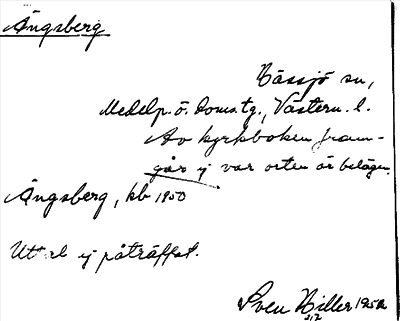 Ängsberg
Tåssjö sn,
Medelp. ö. doms.tg., Västern. l.
Av kyrkboken fram-
går ej var orten är belägen.
Ängsberg, kb 1950
Uttal ej påträffat.
Sven Hiller 1952